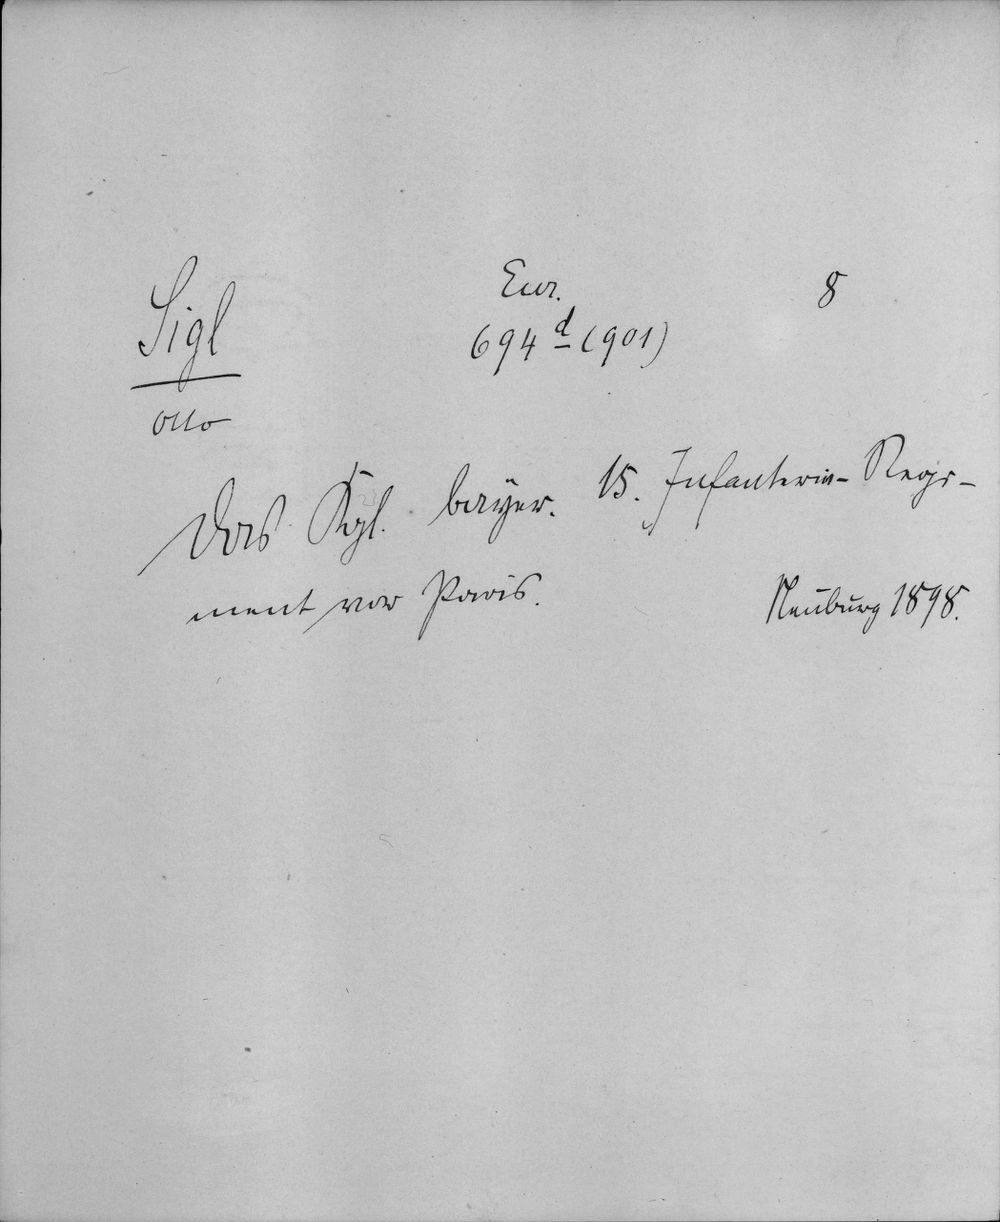 Sigl
Otto
Eur.
694 d (901)
8
Das Kgl. bayer. 15. Infanterie-Regi-
ment vor Paris.
Neuburg 1898.